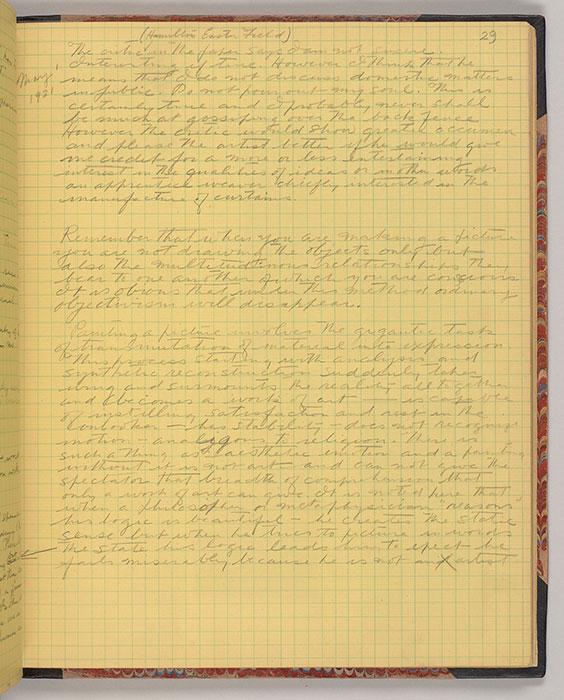 (Hamilton Easter Field)
29
The critic in the paper says I am not sincere.
May 1921
Interesting if true. However I think that he
means that I does not discuss domestic matters
in public. Do not pour out my soul. This is
certainly true and I probably never shall
be much at gossiping over the back fence
However the critic would show greater accumen
and please the artist better if he would give
me credit for a more or less entertaining
interest in the qualities of ideas or in other words
an apprentice weaver chiefly interested in the
manufacture of curtains.
Remember that when you are making a picture
you are not drawing the objects only but
also the multitudinous relationships they
bear to one another of which you are conscious
It is obvious that under this method ordinary
objectivism will disappear.
Painting a picture involves the gigantic task
of transmutation of material into expression
This process starting with analysis and
synthetic reconstruction suddenly takes
wing and surmounts the reality altogether
and becomes a work of art — is capable
of instilling satisfaction and rest in the
onlooker — has stability — does not recognize
motion — analogous to religion. There is
such a thing as aesthetic emotion and a painting
without it is not art and can not give the
spectator that breadth of comprehension that
only a work of art can give. It is noted here that
when a philosopher or metaphysician "reasons"
his logic is beautiful — he creates the static
sense but when he tries to picture in words
the state his logic leads him to expect he
fails miserably because he is not an artist